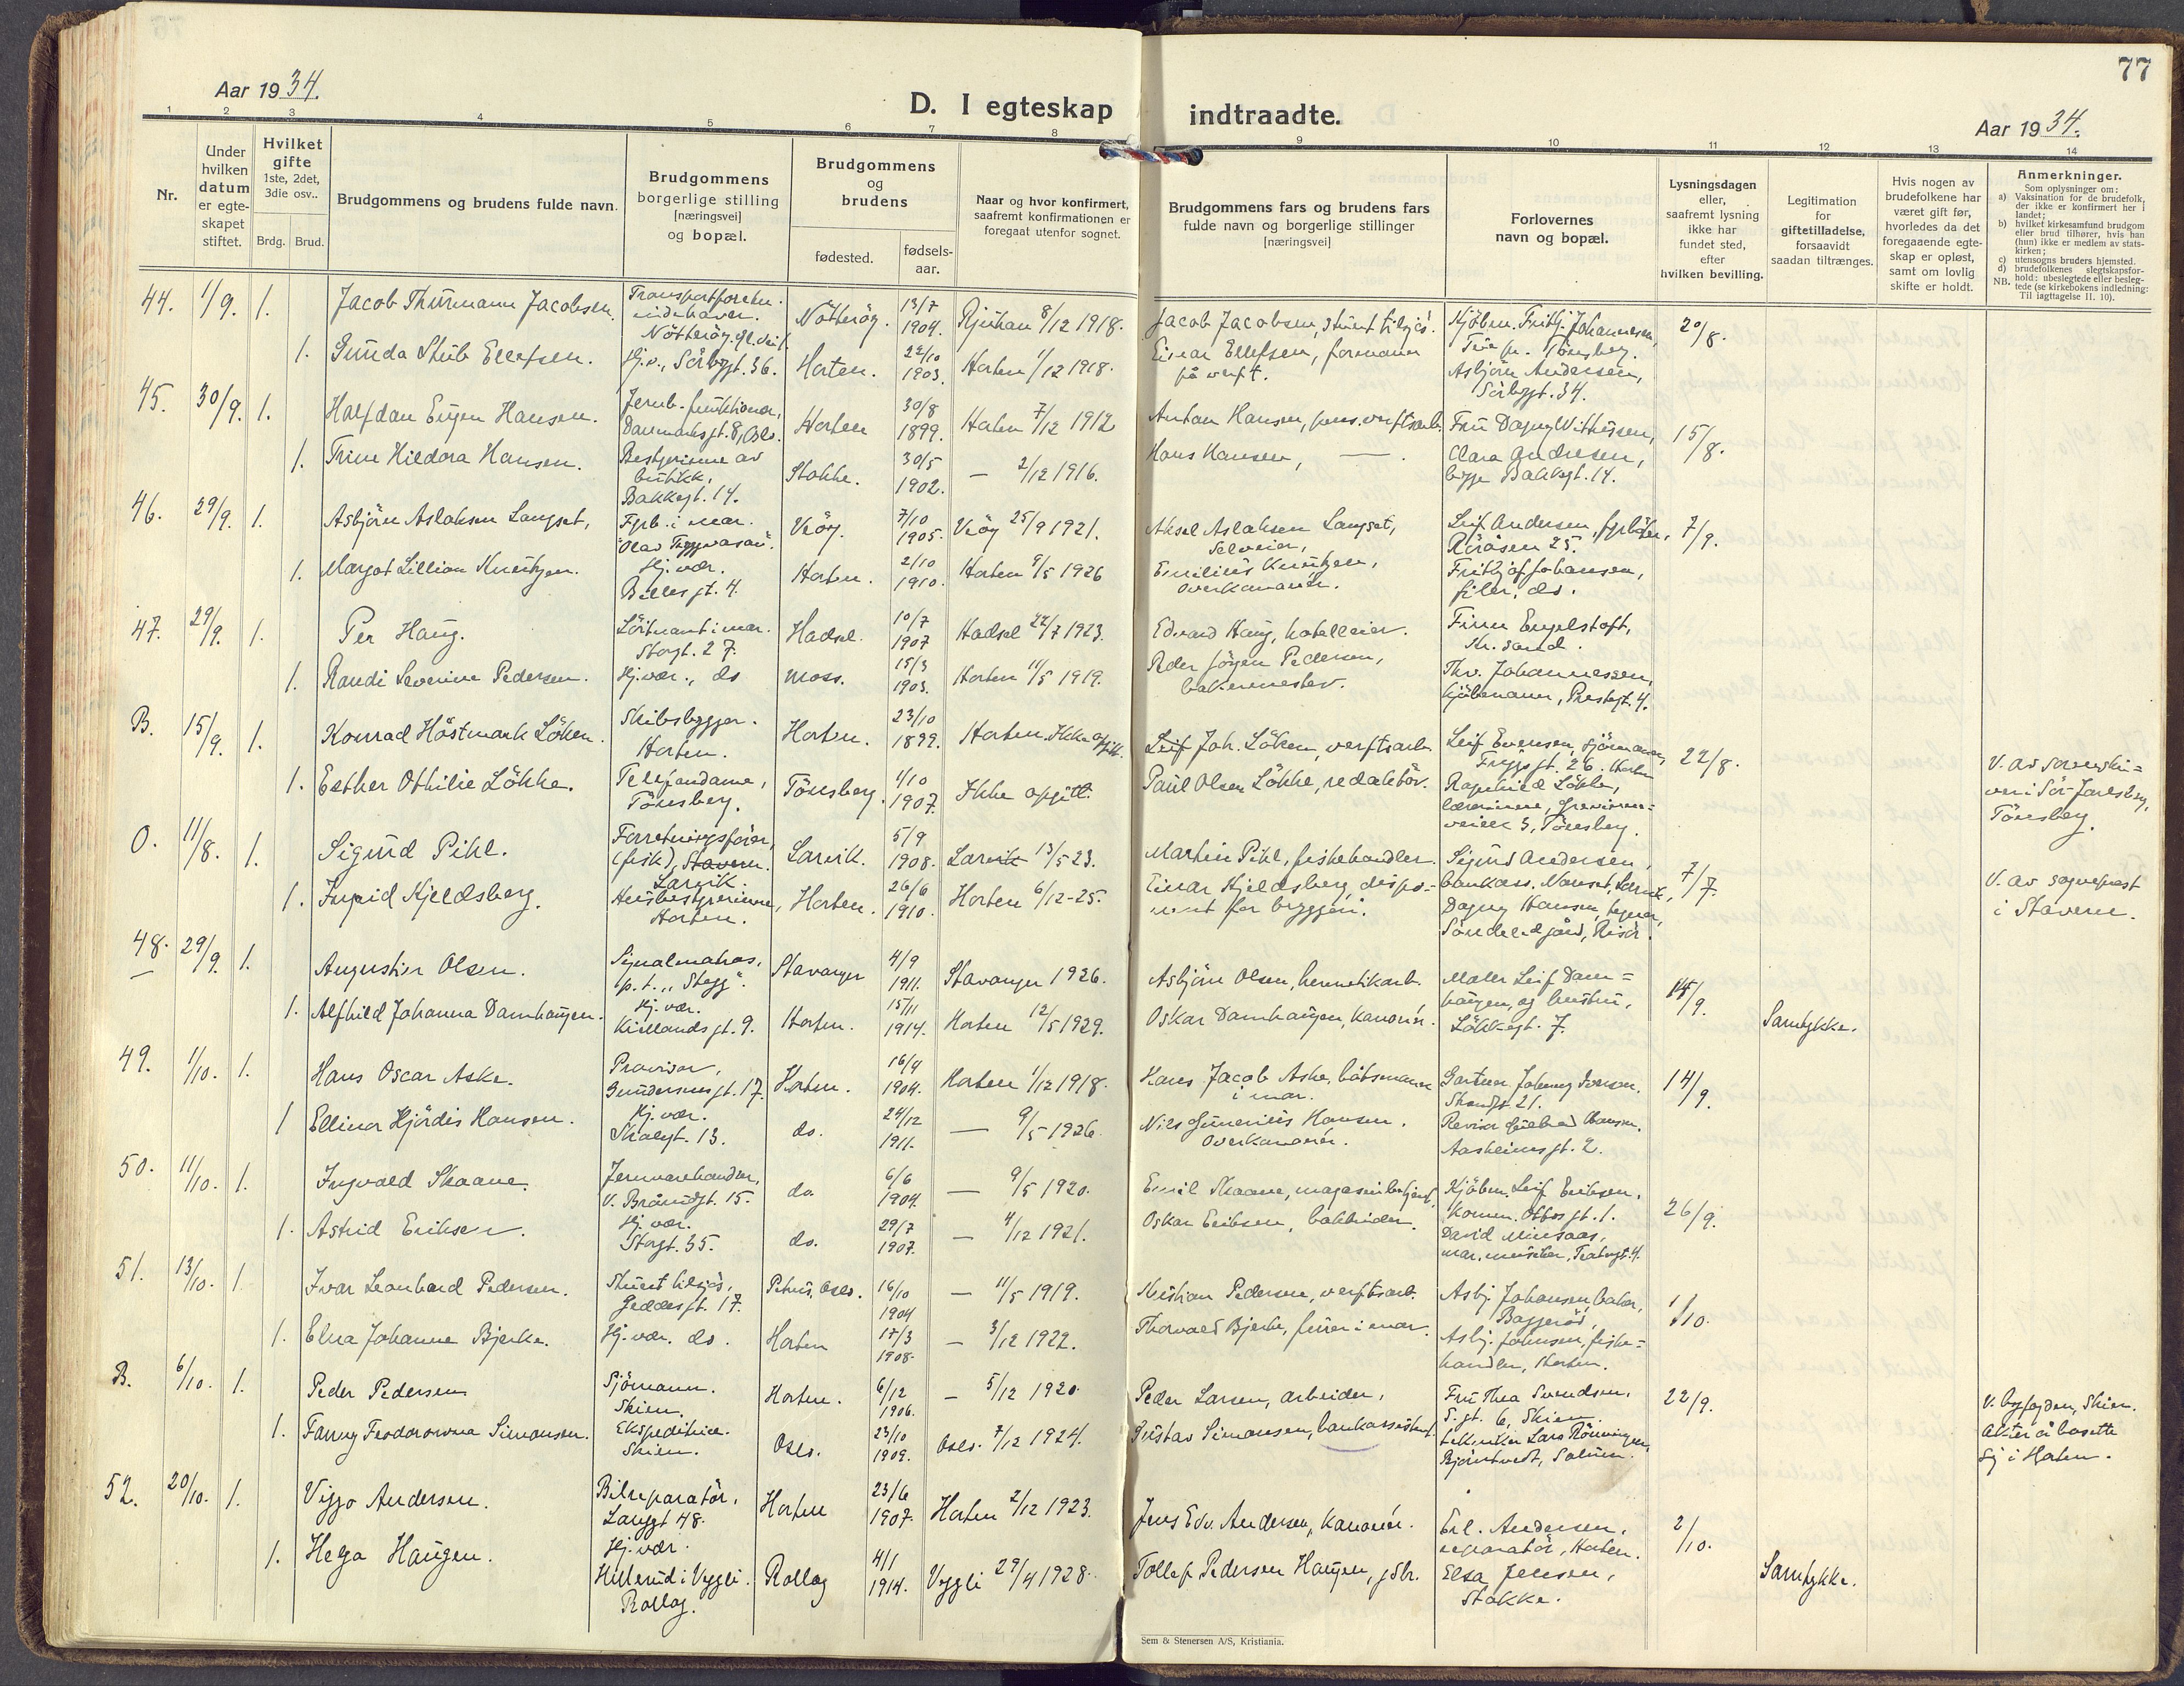 77
Aar 1934.
D. I egteskap indtraadte.
Aar 1934.
1 2 3 4 5 6 7 8 9 10 11 12 13 14
Nr.
Under hvilken datum er egte-skapet stiftet.
Hvilket gifte 1ste, 2det, 3die osv..
Brdg. Brud.
Brudgommens og brudens fulde navn.
Brudgommens borgerlige stilling [næringsvei] og bopæl.
Brudgommens og brudens
fødested.
fødsels-aar.
Naar og hvor konfirmert, saafremt konfirmationen er foregaat utenfor sognet.
Brudgommens fars og brudens fars fulde navn og borgerlige stillinger [næringsvei]
Forlovernes navn og bopæl.
Lysningsdagen eller, saafremt lysning ikke har fundet sted, efter hvilken bevilling.
Legitimation for giftetilladelse, forsaavidt saadan tiltrænges.
Hvis nogen av brudefolkene har været gift før, hvorledes da det foregaaende egte-skap er opløst, samt om lovlig skifte er holdt.
Anmerkninger.
Som oplysninger om:
a) Vaksination for de brudefolk, der ikke er konfirmert her i landet;
b) hvilket kirkesamfund brudgom eller brud tilhører, hvis han (hun) ikke er medlem av stats-kirken;
c) utensogns bruders hjemsted.
d) brudefolkenes slegtskapsfor-hold: ubeslegtede eller besleg-tede (se kirkebokens indledning:
NB. Til iagttagelse II. 10).
44. 1/9. 1. Jacob Thurmann Jacobsen. Nötteröy. 13/7 1904. Rjukan 8/12 1918. Jacob Jacobsen, 20/8.
1. Gunda Stub Ellefsen. Hj.v., Sörbygt. 36. Horten. 22/10 1903. Horten 1/12 1918. Einar Ellefsen, formann på verft. Asbjörn Andersen, Sörbygt. 34.
45. 30/9. 1. Halfdan Eugen Hansen. Jernb. funktionær, Danmarksgt. 8, Oslo. Horten 30/8 1899. Horten 7/12 1912 Anton Hansen, pens. verftsarb. Fru Dagny Withssen, 15/8.
1. Trine Hildora Hansen. Bestyrerinne av butikk, Bakkegt. 14. Stokke. 30/5 1902. — 2/12 1916. Hans Hansen, — . Clara Andresen, begge Bakkegt. 14.
46. 29/9. 1. Asbjörn Aslaksen Langset, Fyrb. i mar. "Olav Tryggvason". Veöy. 7/10 1905. Veöy 25/9 1921. Aksel Aslaksen Langset, selveier, Leif Andersen, fyrböter, Röråsen 25. 7/9.
1. Margot Lillian Knutzen. Hj. vær. Billes gt. 4. Horten. 2/10 1910. Horten 9/5 1926 Emilius Knutzen, overkanonér. Frithjof Johansen, filer, do.
47. 29/9. 1. Per Haug. Löitnant i mar. Storgt. 27. Hadsel. 10/7 1907 Hadsel 22/7 1923. Edvard Haug, hotelleier. Finn Engelstoft, Kr. sand.
1. Randi Severine Pedersen. Hj. vær., do Moss. 15/3 1903. Horten 11/5 1919. Peder Jörgen Pedersen, bakermester. Thv. Johannessen, kjöbmann, Prestegt. 4.
B. 15/9. 1. Konrad Höstmark Löken. Skibsbygger. Horten. Horten. 23/10 1899. Horten. Ikke opgitt. Leif Joh. Löken, verftsarb. Leif Evensen, sjömann, Freysgt. 26. Horten 22/8. V. av sorenskri=veri Sör-Jarlsberg, Tönsberg.
1. Esther Othilie Lökke. Telefondame, Tönsberg. Tönsberg. 4/10 1907. Ikke opgitt. Paul Olsen Lökke, redaktör. Ragnhild Lökke, lærerinne, Grevinne=veien 3, Tönsberg.
O. 11/8. 1. Sigurd Pihl. Forretningsförer, (fisk), Stavern. Larvik. Larvik. 5/9 1908. Larvik 13/5 23. Martin Pihl, fiskehandler. Sigurd Andersen, bankass. Nanset, Larvik, 7/7. V. av sogneprest i Stavern.
1. Ingrid Kjeldsberg. Husbestyrerinne, Horten. Horten. 26/6 1910. Horten 6/12-25. Einar Kjeldsberg, dispo=nent for bryggeri. Dagny Hansen,
48. 29/9. 1. Augustin Olsen. Signalmatros, p.t. "Stegg". Stavanger 4/9 1911. Stavanger 1926. Asbjörn Olsen, hermetikarb. Maler Leif Dam=haugen, og hustru, Lökkegt. 7. 15/9.
1. Alfhild Johanna Damhaugen. Hj. vær. Kiellandsgt. 9. Horten. 15/11 1914. Horten 12/5 1929. Oskar Damhaugen, kanonér. Samtykke.
49. 1/10. 1. Hans Oscar Aske. Provisor, Gundersensgt. 17. Horten. 16/4 1904. Horten 1/12 1918. Hans Jacob Aske, båtsmann i mar. Gartner Johnny Iversen. Strandgt 21. 14/9.
1 Ellinor Hjördis Hansen. Hj. vær. Skolegt. 13. do. 24/12 1911. — 9/5 1926. Nils Gunerius Hansen. Overkanonér. Revisor Hansen. Aasheimsgt. 2.
50. 11/10. 1. Ingvald Skaane. Jernvarehandler, V. Bråundgt. 15. do. 6/6 1904. — 9/5 1920. Emil Skaane, magasinbetjent, Kjöbm. Leif Eriksen, Komm. Ottosgt. 1. 26/9.
1. Astrid Eriksen. Hj. vær. Storgt. 35. do. 29/7 1907. — 4/12 1921. Oskar Eriksen, bokbinder. David Minsaas, mar. musiker, Teatergt. 4.
51. 13/10. 1. Ivar Leonhard Pedersen. Geddesgt. 17. Petrus, Oslo. 16/10 1904 — 11/5 1919. Kristian Pedersen, verftsarb. Asbj. Johansen, baker, Baggeröd, 1/10.
1. Elna Johanne Bjerke. Hj. vær. do. Horten 17/3 1908. — 3/12 1922. Thorvald Bjerke, furer i mar. Asbj. Johnsen, fiske=handler, Horten.
B. 6/10. 1. Peder Pedersen Sjömann. Skien. Horten. 6/12 1906. — 5/12 1920. Peder Larsen, arbeider, Fru Thea Svendsen, S.gt. 6, Skien. 22/9. V. byfogden, Skien. Akter å bosette sig i Horten.
1. Fanny Feodorovna Simonsen. Ekspeditrice. Skien. Oslo. 23/10 1909. Oslo. 7/12 1924. Gustav Simonsen, bankassistent. Lars Rönningen, Bjørntvedt, Solum.
52. 20/10. 1. Viggo Andersen. Bilreparatör, Langgt 48. Horten 23/6 1907. Horten 2/12 1923. Jens Edv. Andersen, kanonér. Erl. Andersen, reparatör, Horten. 2/10.
1. Helga Haugen. Hj. vær. Hillerud i Veggli. Rollag. Rollag 4/1 1914. Veggli 29/4 1928. Tollef Pedersen Haugen, gbr. Elsa Jensen, Stokke. Samtykke.
Sem & Stenersen A/S, Kristiania.